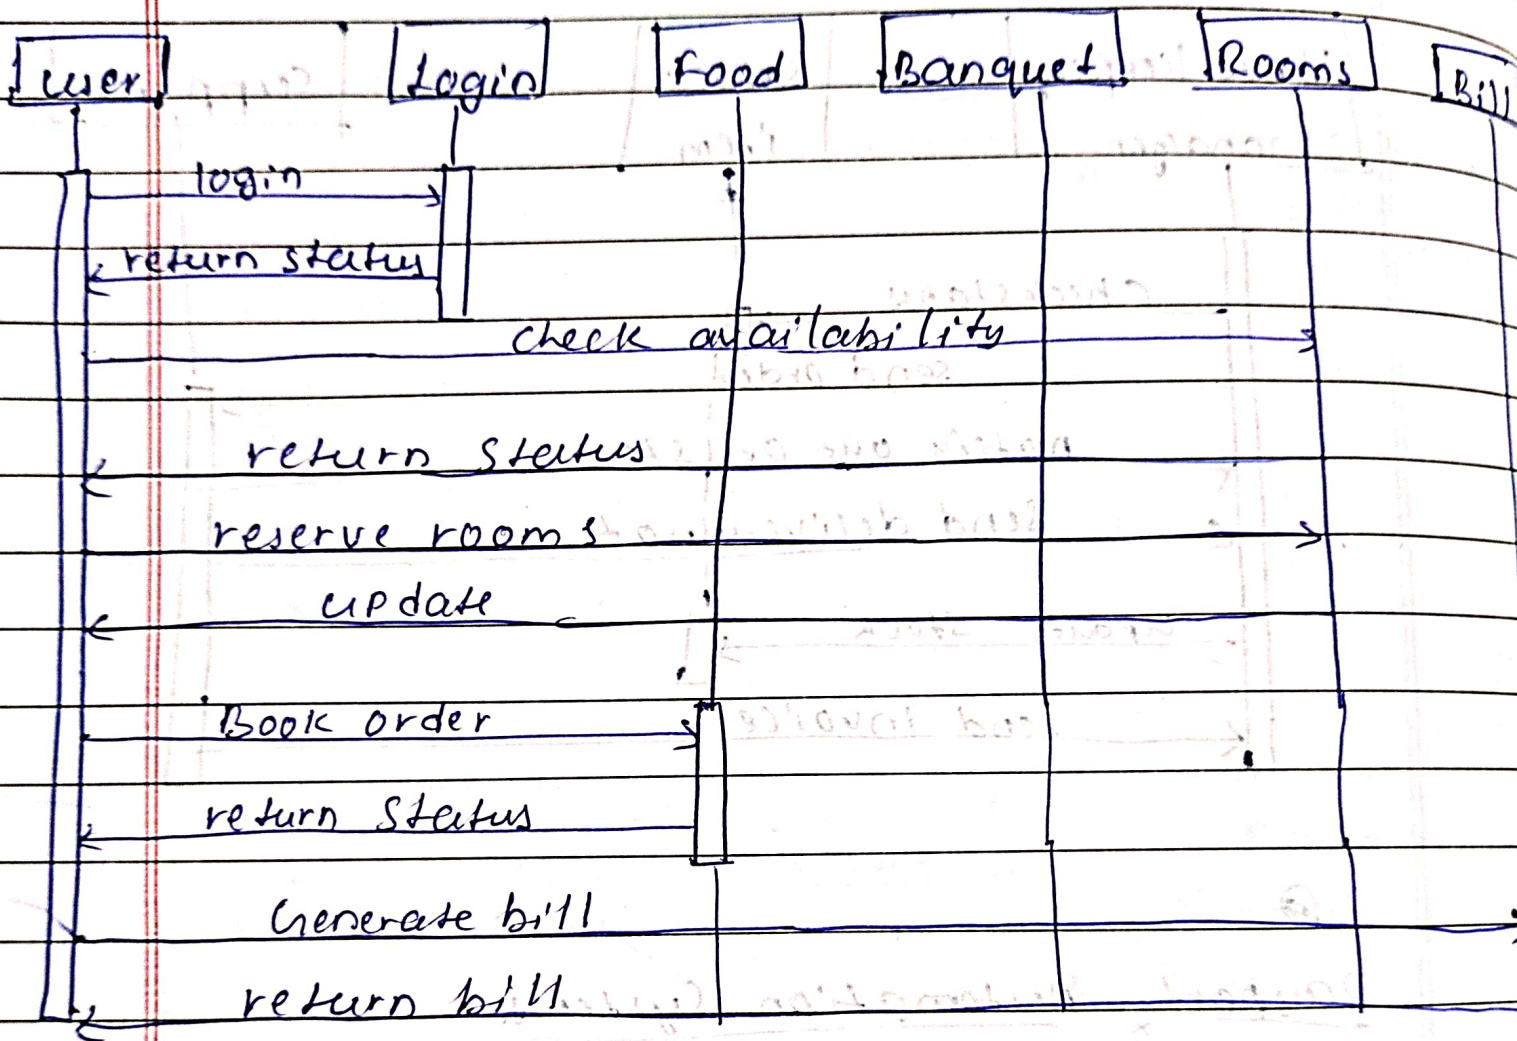 user Login Food Banquet Rooms Bill
login
return status
check availability
return status
reserve rooms
update
Book order
return status
Generate bill
return bill